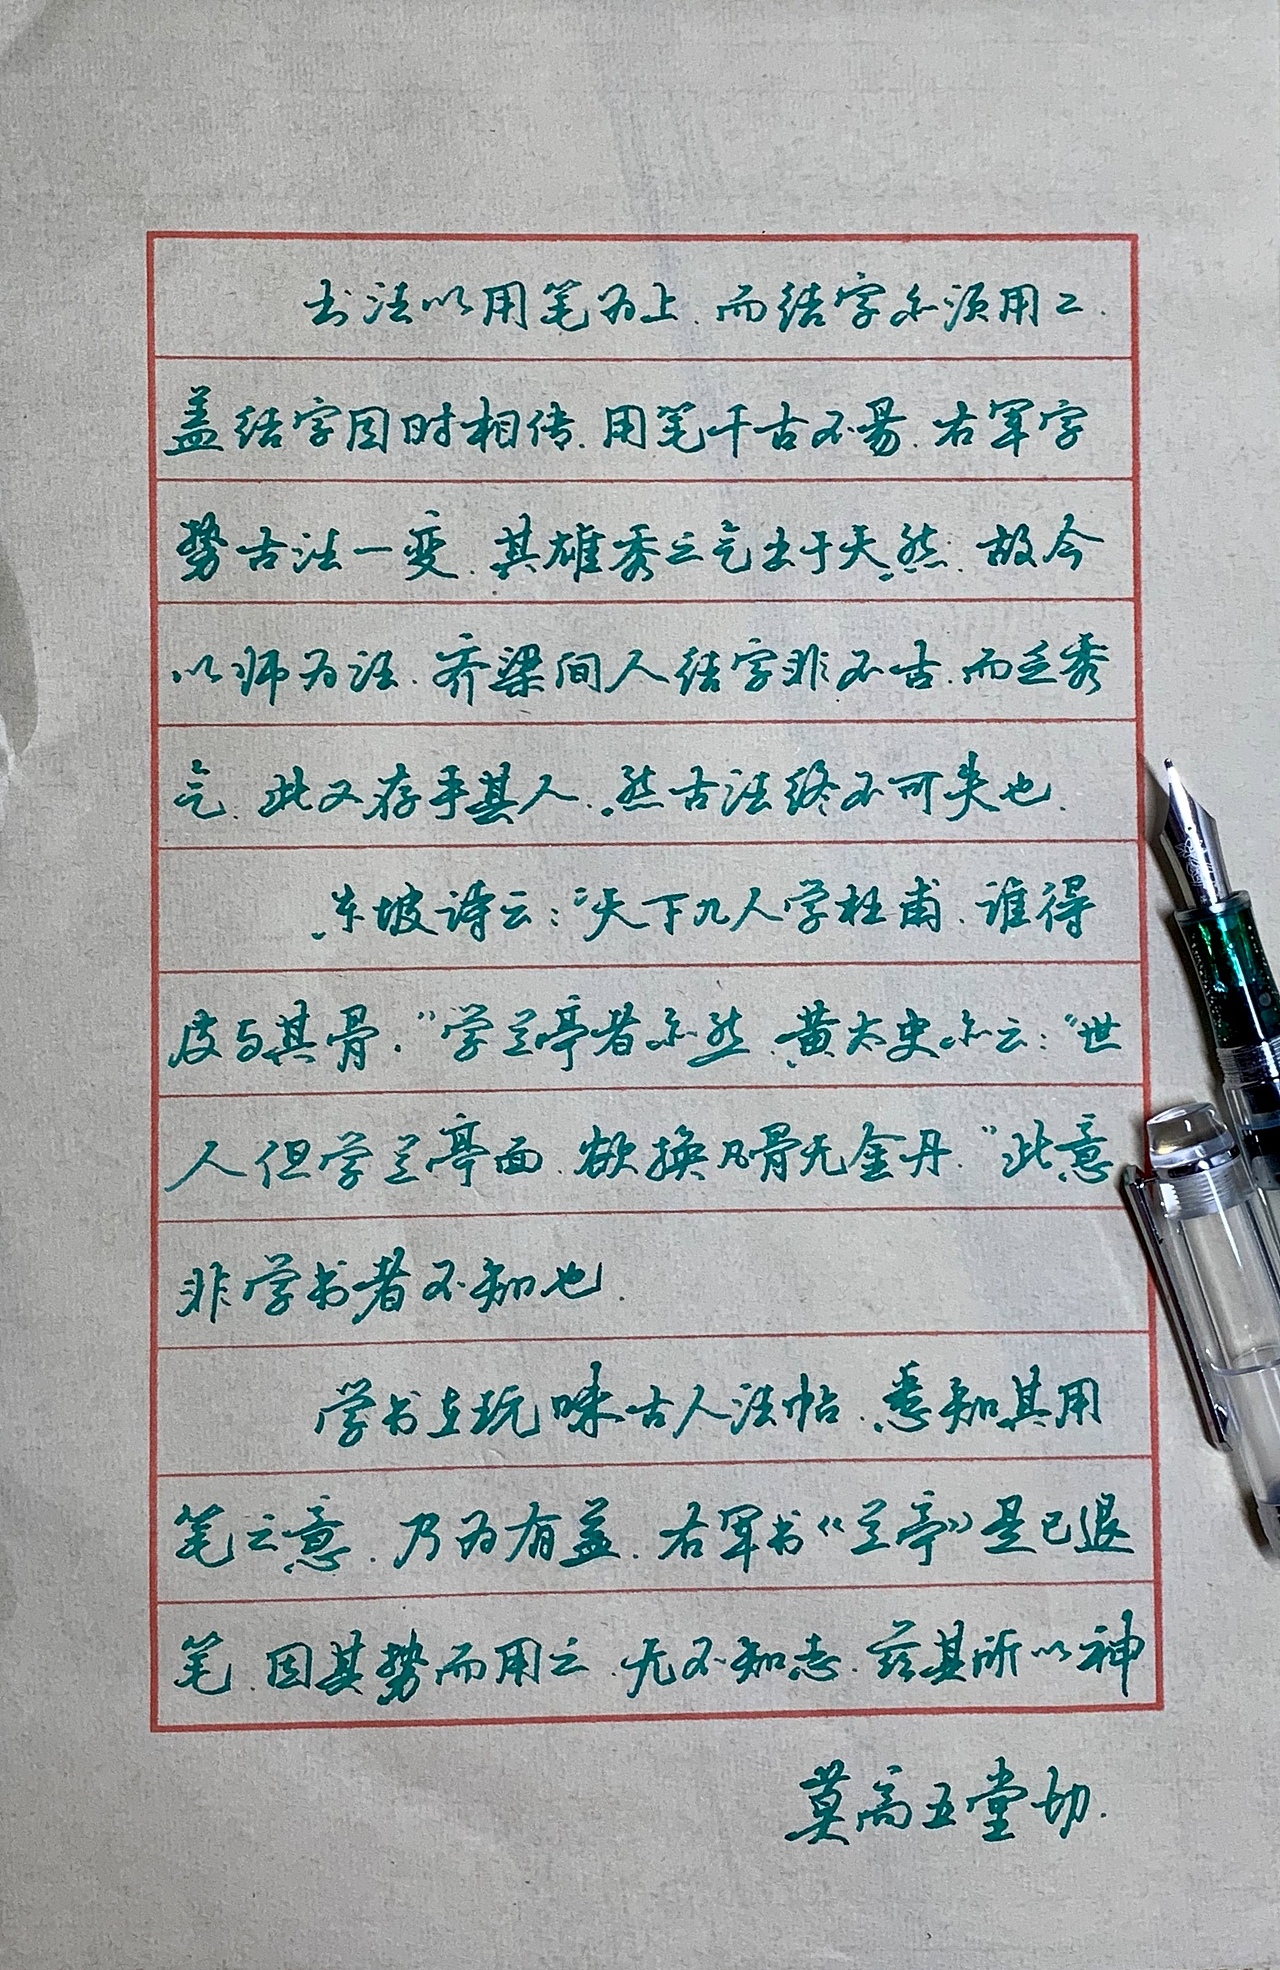 书法以用笔为上.而结字亦须用工.
盖结字因时相传.用笔千古不易.右军字
势古法一变.其雄秀之气出于天然.故今
以师为法.齐梁间人结字非不古.而乏秀
气.此又存乎其人.然古法终不可失也.
东坡诗云："天下几人学杜甫.谁得
皮与其骨."学兰亭者亦然.黄太史亦云："世
人但学兰亭面.欲换凡骨无金丹."此意
非学书者不知也.
学书在玩味古人法帖.悉知其用
笔之意.乃为有益.右军书《兰亭》是已退
笔.因其势而用之.无不如志.兹其所以神
莫高五堂